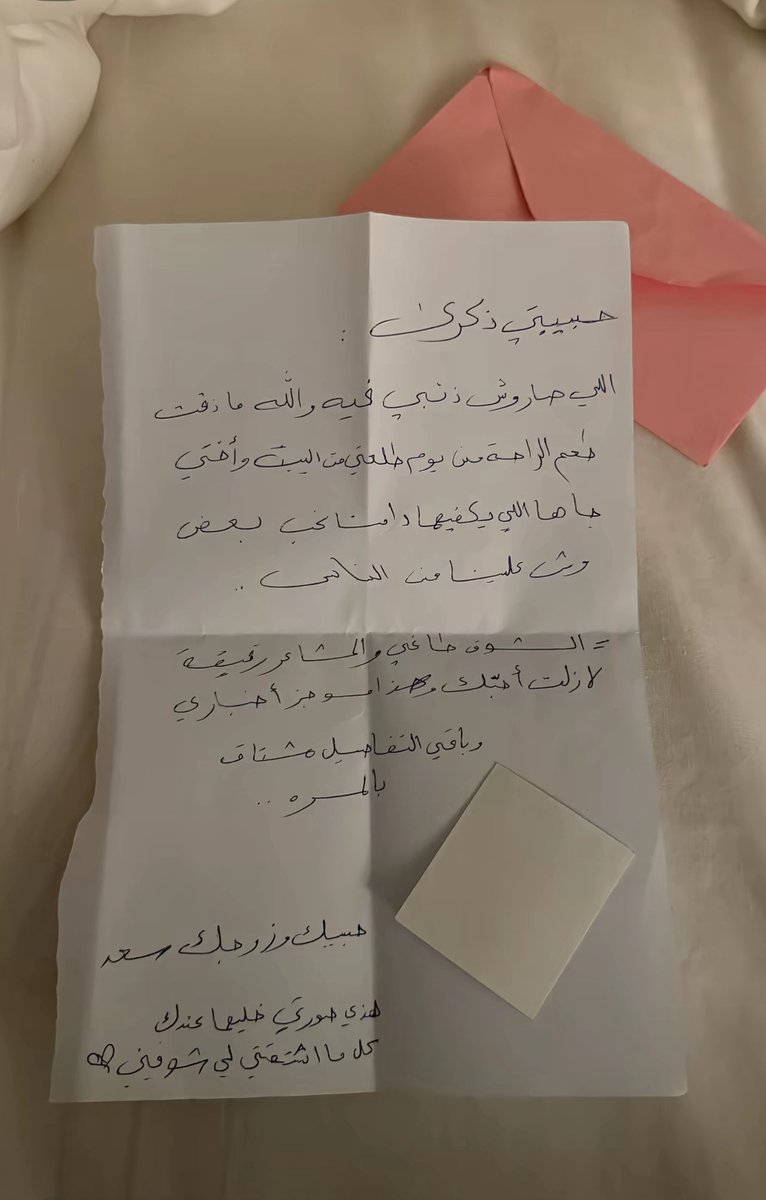 حبيبتي ذكرى :
اللي صار وش ذنبي فيه والله ما ذقت
طعم الراحة من يوم طلعتي من البيت وأختي
جاها اللي يكفيها دامنا نحب بعض
وش علينا من الناس ..
= الشوق طاغي والمشاعر رقيقة
لازلت أحبّك وهذا موجز أخباري
وباقي التفاصيل مشتاق
بالمره ..
حبيبك وزوجك سعد
هذي صورتي خليها عندك
كل ما اشتقتي لي شوفيني